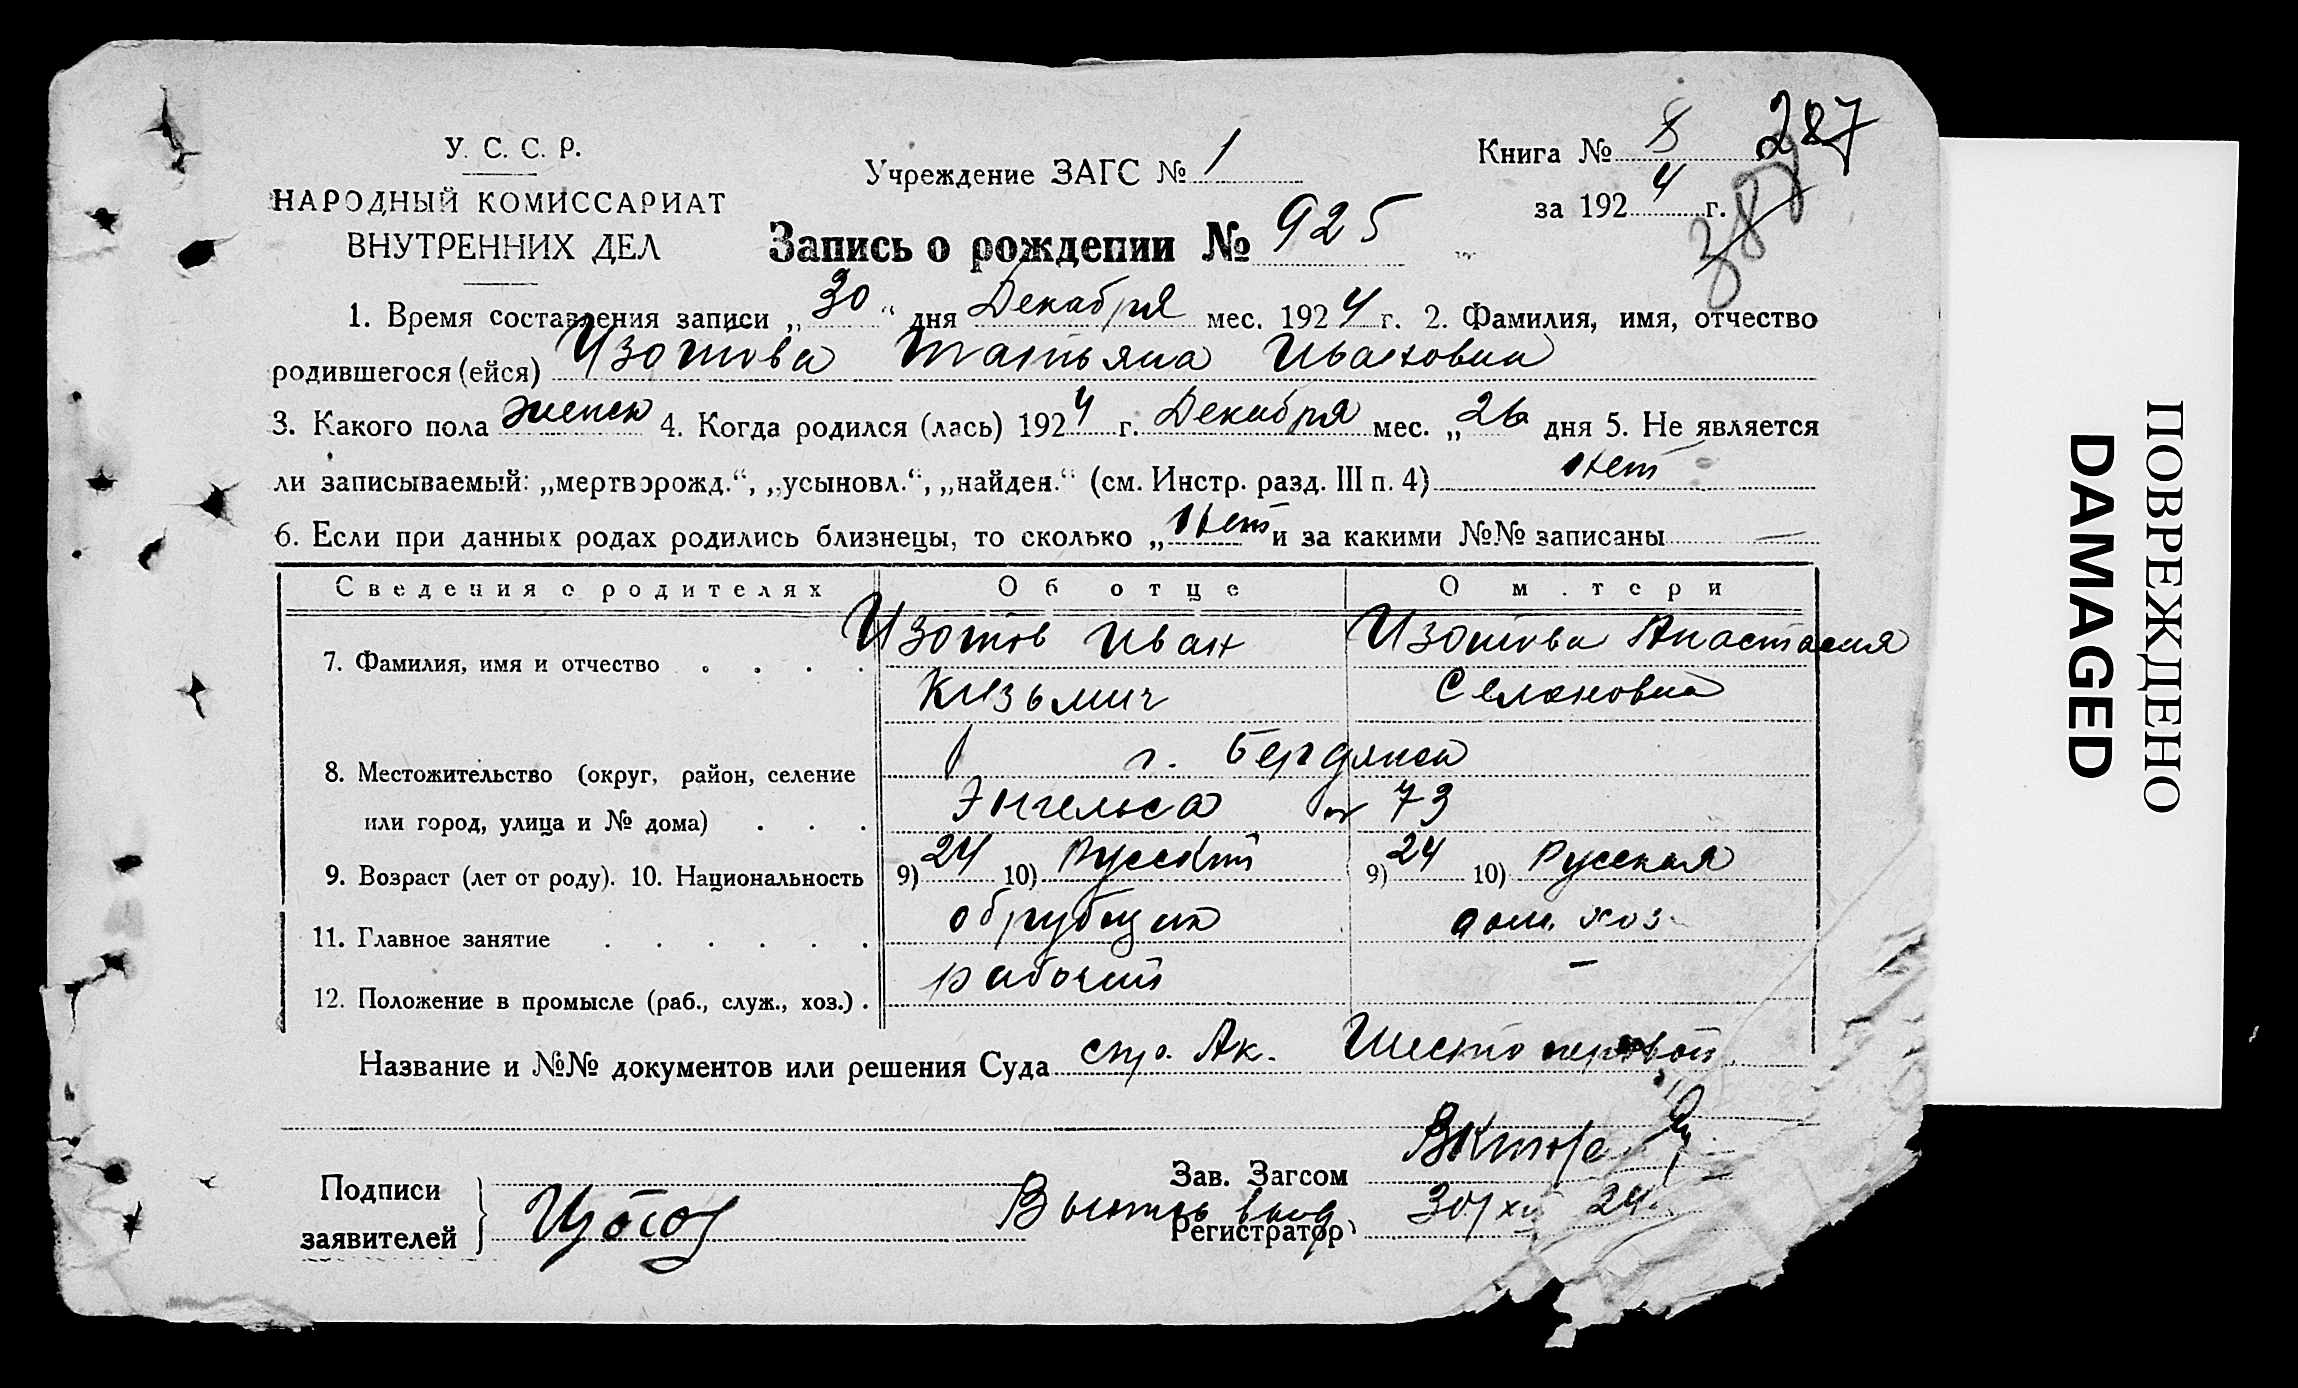 У. С. С. Р.
НАРОДНЫЙ КОМИССАРИАТ
ВНУТРЕННИХ ДЕЛ
Учреждение ЗАГС № 1
Книга № 8 287
за 1924 г.
Запись о рождении № 925
1. Время составления записи „30" дня Декабря мес. 1924 г. 2. Фамилия, имя, отчество
родившегося (ейся) Изотова Татьяна Ивановна
3. Какого пола женск 4. Когда родился (лась) 1924 г. Декабря мес. „26 дня 5. Не является
ли записываемый: „мертворожд.“, „усыновл.“, „найден.“ (см. Инстр. разд. III п. 4) Нет
6. Если при данных родах родились близнецы, то сколько „Нет и за какими №№ записаны —
Сведения о родителях Об отце О м.тери
7. Фамилия, имя и отчество . . . . Изотов Иван Изотова Анастасия
Кузьмич Семеновна
8. Местожительство (округ, район, селение г. Бердянск
или город, улица и № дома) . . . Энгельса № 73
9. Возраст (лет от роду). 10. Национальность 9) 24 10) Русский 9) 24 10) Русская
11. Главное занятие . . . . . . обрубщик дом. хоз.
12. Положение в промысле (раб., служ., хоз.) . рабочий —
Название и №№ документов или решения Суда спр. Ак. Шестоперовой
Зав. Загсом
Подписи
заявителей
Регистратор 30/XII 24
ПОВРЕЖДЕНО
DAMAGED